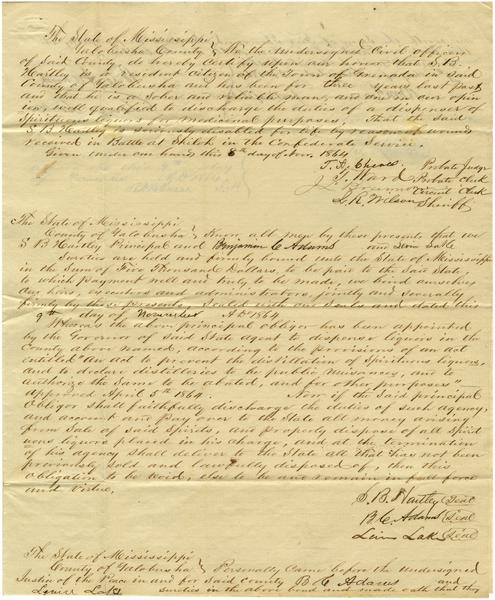 The State of Mississippi
Yalobusha County } We the undersigned Civil officers
of Said County, do hereby Certify upon our honor that S. B.
Hartley is a resident Citizen of the Town of Grenada in Said
County of Yalobusha and has been for three years last past
and that he is a sober and reliable man, and one in our opin
ion, well qualified to discharge the duties of a dispenser of
Spirituous liquors for medicinal purposes. That the said
S B Hartley is seriously disabled for life by reason of wounds
received in Battle at Shiloh in the Confederate Service.
Given under our hands this 5th day of Nov. 1864
Probate Judge
J. Ward Probate Clerk
Circuit Clerk
L. R. Wilson Sheriff
The State of Mississippi
County of Yalobusha } Know all men by these presents that we
S B Hartley Principal and Benjamin C Adams and Levin Lake
Sureties are held and firmly bound unto the State of Mississippi
in the Sum of Five Thousand Dollars, to be paid to the Said State,
to which payment well and truly to be made, we bind ourselves
our heirs, executors and administrators, jointly and severally
firmly by these presents, Sealed with our seals and dated this
9th day of November AD 1864
Whereas the above principal obligor has been appointed
by the Governor of said State agent to dispense liquors in the
County above named, according to the provisions of an act
entitled "An act to prevent the distillation of Spirituous liquors,
and to declare distilleries to be public nuisances, and to
authorize the same to be abated, and for other purposes"
approved April 5th 1864. Now if the Said principal
Obligor shall faithfully discharge the duties of such agency,
and account for & pay over to the State all money arising
from Sale of said Spirits, and properly dispose of all Spirit
uous liquors placed in his charge, and at the termination
of his agency shall deliver to the State all that has not been
previously sold and lawfully disposed of, then this
obligation to be void, else to be and remain in full force
and virtue.
S. B. Hartley (Seal)
B. C. Adams (Seal)
Levin Lake (Seal)
The State of Mississippi
County of Yalobusha } Personally Came before the undersigned
Justice of the Peace in and for said County B C Adams and
Levin Lake sureties in the above bond and made oath that they